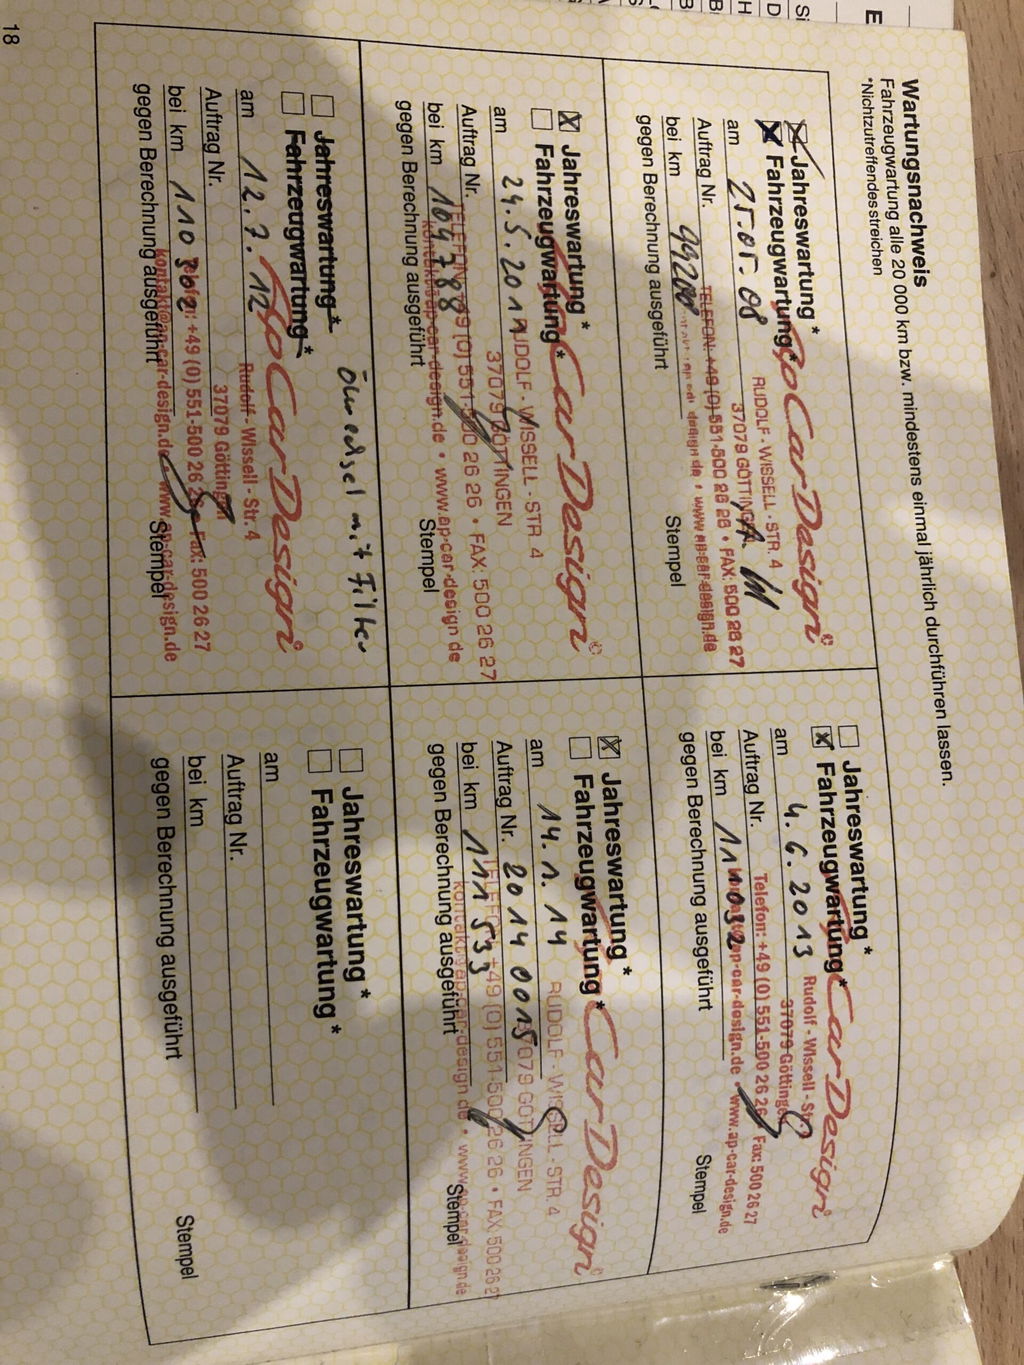 Wartungsnachweis
Fahrzeugwartung alle 20 000 km bzw. mindestens einmal jährlich durchführen lassen.
*Nichtzutreffendes streichen
Jahreswartung *
Fahrzeugwartung *
am 25.05.08
Auftrag Nr.
bei km 99200
gegen Berechnung ausgeführt
Stempel
CarDesign ©
RUDOLF - WISSELL - STR. 4
37079 GÖTTINGEN
TELEFON: +49 (0) 551-500 26 26 • FAX: 500 26 27
www.ap-car-design.de
Jahreswartung *
Fahrzeugwartung *
am 4.6.2013
Auftrag Nr.
bei km 111032
gegen Berechnung ausgeführt
Stempel
CarDesign
Rudolf - Wissell - Str.
37079 Göttingen
Telefon: +49 (0) 551-500 26 26 Fax: 500 26 27
www.ap-car-design.de
Jahreswartung *
Fahrzeugwartung *
am 24.5.2011
Auftrag Nr.
bei km 104788
gegen Berechnung ausgeführt
Stempel
CarDesign ©
RUDOLF - WISSELL - STR. 4
37079 GÖTTINGEN
TELEFON +49 (0) 551-500 26 26 • FAX: 500 26 27
kontakt@ap-car-design.de • www.ap-car-design de
Jahreswartung *
Fahrzeugwartung *
am 14.1.14
Auftrag Nr. 2014 0015
bei km 111533
gegen Berechnung ausgeführt
Stempel
CarDesign ©
RUDOLF - WISSELL - STR. 4
37079 GÖTTINGEN
TELEFON +49 (0) 551-500 26 26 • FAX: 500 26 27
kontakt@ap-car-design.de • www.ap-car-design.de
Jahreswartung *
Fahrzeugwartung *
Ölwechsel mit Filter
am 12.7.12
Auftrag Nr.
bei km 110302
gegen Berechnung ausgeführt
Stempel
CarDesign
Rudolf - Wissell - Str. 4
37079 Göttingen
Telefon: +49 (0) 551-500 26 26 Fax: 500 26 27
kontakt@ap-car-design.de www.ap-car-design.de
Jahreswartung *
Fahrzeugwartung *
am
Auftrag Nr.
bei km
gegen Berechnung ausgeführt
Stempel
18